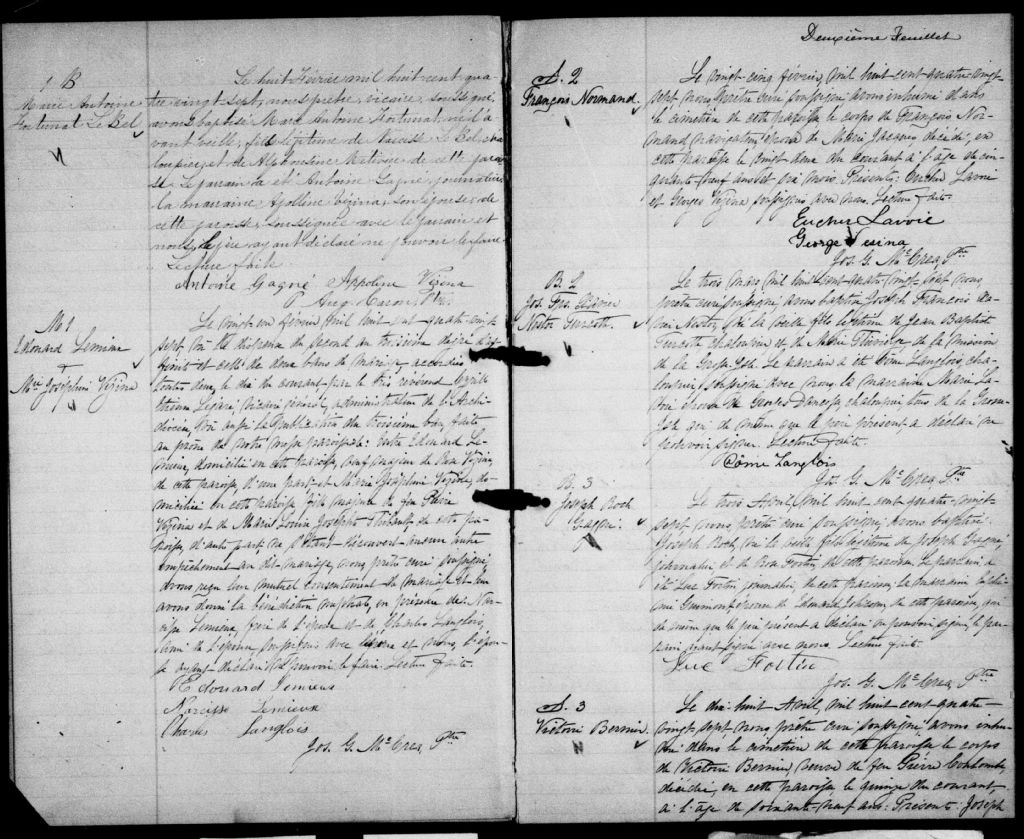 1 B
Marie Antoine
Fortunat Le Bel
Le huit Février mil huit cent qua-
tre vingt sept, nous prêtre, vicaire, soussigné,
avons baptisé Marie Antoine Fortunat, né l'a-
vant veille, fils légitime de Narcisse Le Bel, cha-
loupier, et de Alphonsine de cette parois-
se. Le parrain a été Antoine Gagné, journalier,
la marraine Apoline Vézina, son épouse, de
cette paroisse, soussignée avec le parrain et
nous, le père ayant déclaré ne pouvoir le faire.
Lecture faite.
Antoine Gagné Appoline Vézina
Ptre.
M 1
Edouard Lemieux
+
Mie Joséphine Vézina
Le vingt un février mil huit cent quatre vingt
sept, vu la dispense du second au troisième degré d'af-
finité et celle de deux bans de mariage accordées
toutes deux, le dix du courant par le très révérend Cyrille
Etienne Légaré, vicaire général, administrateur de l'Archi-
diocèse, vu aussi la publication du troisième ban faite
au prône de notre messe paroissiale: entre Edouard Le-
mieux, domicilié en cette paroisse, veuf majeur de Vézina,
de cette paroisse, d'une part, et Marie Joséphine Vézina, do-
miciliée en cette paroisse, fille majeure de feu Pierre
Vézina et de Marie Louise Josephte Thibault de cette pa-
roisse, d'autre part; ne s'étant découvert aucun autre
empêchement au dit mariage, nous prêtre curé soussigné,
avons reçu leur mutuel consentement de mariage et leur
avons donné la bénédiction nuptiale, en présence de Nar-
cisse Lemieux, frère de l'époux et de Charles Langlois,
ami de l'épouse, soussignés avec l'époux et nous, l'épou-
se ayant déclaré ne pouvoir le faire. Lecture faite.
Edouard Lemieux
Narcisse Lemieux
Charles Langlois
Jos. G. McCrea Ptre
Deuxième Feuillet
S. 2
François Normand
Le vingt cinq février, mil huit cent quatre vingt
sept nous prêtre curé soussigné avons inhumé dans
le cimetière de cette paroisse le corps de François Nor-
mand, navigateur, époux de Marie Jacques décédé, en
cette paroisse le vingt deux du courant à l'âge de cin-
quante-neuf ans et six mois. Présents: Eucher Lavoie
et Georges Vézina soussignés avec nous. Lecture faite.
Eucher Lavoie
George Vesina
Jos. G. McCrea Ptre
B. 2
Jos. Frs. Xavier
Nestor Turcotte
Le trois mars mil huit cent quatre vingt sept nous
prêtre curé soussigné, avons baptisé Joseph François Xa-
vier Nestor, né la veille, fils légitime de Jean Baptiste
Turcotte chaloupier et de Marie de la mission
de la Grosse Isle. Le parrain a été Côme Langlois cha-
loupier, soussigné avec nous, la marraine Marie La-
voie épouse de Georges chaloupier tous de la Grosse
Isle qui de même que le père présent a déclaré ne
pouvoir signer. Lecture faite.
Côme Langlois
Jos. G. McCrea Ptre
B. 3
Joseph Roch
Gagné
Le trois Avril, mil huit cent quatre vingt-
sept nous prêtre curé soussigné, avons baptisé
Joseph Roch, né la veille fils légitime de Joseph Gagné,
journalier, et de Fortin, de cette paroisse. Le parrain a
été Luc Fortin journalier, de cette paroisse, la marraine
Guimont épouse de Edouard de cette paroisse, qui
de même que le père présent a déclaré ne pouvoir signer, le par-
rain ayant signé avec nous. Lecture faite.
Luc Fortin
Jos. G. McCrea Ptre
S. 3
Victoire Bernier
Le dix huit Avril, mil huit cent quatre-
vingt sept nous prêtre curé soussigné, avons inhu-
mé dans le cimetière de cette paroisse le corps
de Victoire Bernier, veuve de feu Pierre Coulombe,
décédée, en cette paroisse le quinze du courant
à l'âge de soixante-neuf ans. Présents: Joseph